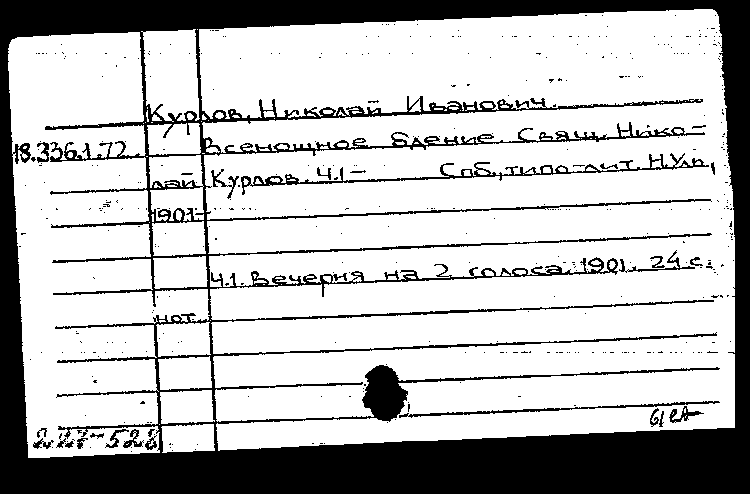 Курлов, Николай Иванович.
18.336.1.72. Всенощное бдение. Свящ. Нико-
лай Курлов. Ч.1- Спб., типо-лит. Н.Уль,
1901-
Ч.1. Вечерня на 2 голоса. 1901. 24 с.
нот.
227-528